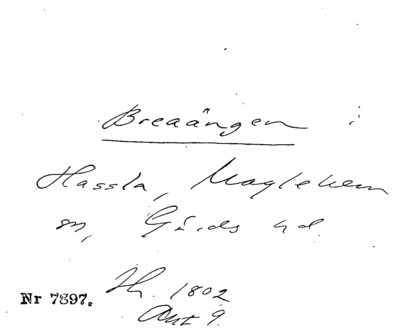 Breaängen i
Hassla, Maglehem
sn, Gärds hd.
Nr 7897. Jb. 1802
Akt 9.